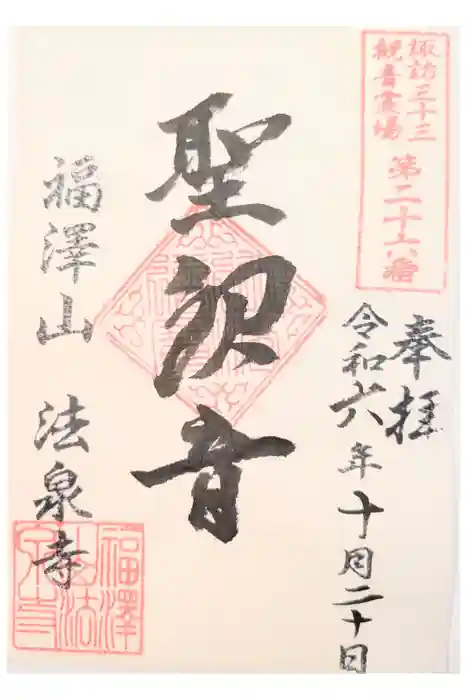 諏訪三十三
観音霊場
第二十六番
奉拝
令和六年十月二十日
聖観音
福澤山 法泉寺
福澤
山法
泉寺